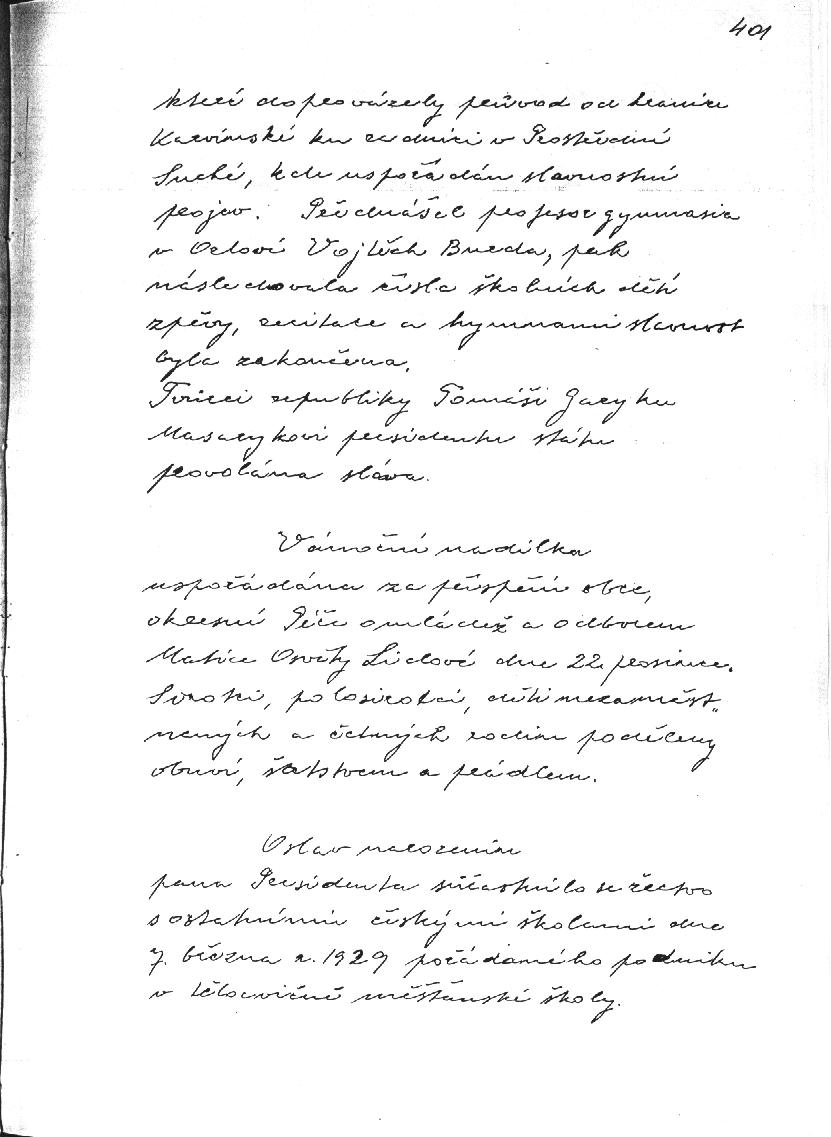 401
které doprovázely průvod od hranice
Karvínské ku radnici v Prostřední
Suché, kde uspořádán slavnostní
projev. Přednášel profesor gymnasia
v Orlové Vojtěch Bureda, pak
následovala čísla školních dětí
zpěvy, recitace a hymnami slavnost
byla zakončena.
Tvůrci republiky Tomáši Garyku
Masarykovi presidentu státu
provolána sláva.
Vánoční nadílka
uspořádána za přispění obce,
okresní Péče o mládež a odborem
Matice Osvěty Lidové dne 22. prosince.
Sirotci, polosirotci, děti nezaměst„
naných a četných rodin poděleny
obuví, šatstvem a prádlem.
Oslav narozenin
pana Presidenta súčastnilo se žactvo
s ostatními českými školami dne
7. března r. 1929 pořádaného podniku
v tělocvičně měšťanské školy.